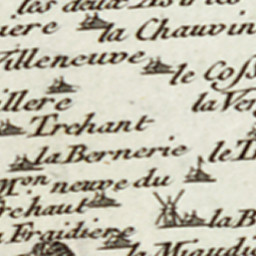 les deux
iere la Chauvin
Villeneuve
le Coss
illere la Ver
Trehant
la Bernerie le
Mon neuve du
rehaut
la B
Fraidiere
la Miaudi